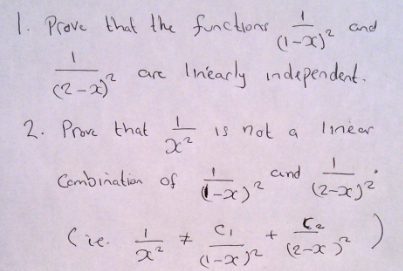 1. Prove that the functions 1/(1-x)² and
1/(2-x)² are linearly independent.
2. Prove that 1/x² is not a linear
Combination of 1/(1-x)² and 1/(2-x)².
(ie. 1/x² ≠ C₁/(1-x)² + C₂/(2-x)²)